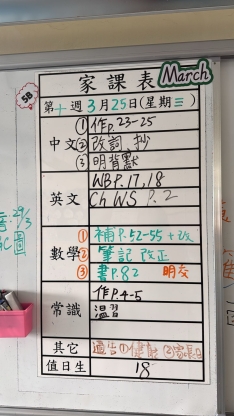 5B
家課表 March
第十週3月25日(星期三)
中文 ① 作P.23-25
② 改詞、抄
③ 明背默
英文 WB P.17,18
Ch WS P.2
數學 ① 補P.52-55 + 改
② 筆記 改正
③ 書P.82 明交
常識 作P.4-5
溫習
其它 通告
值日生 18
29/3
圖